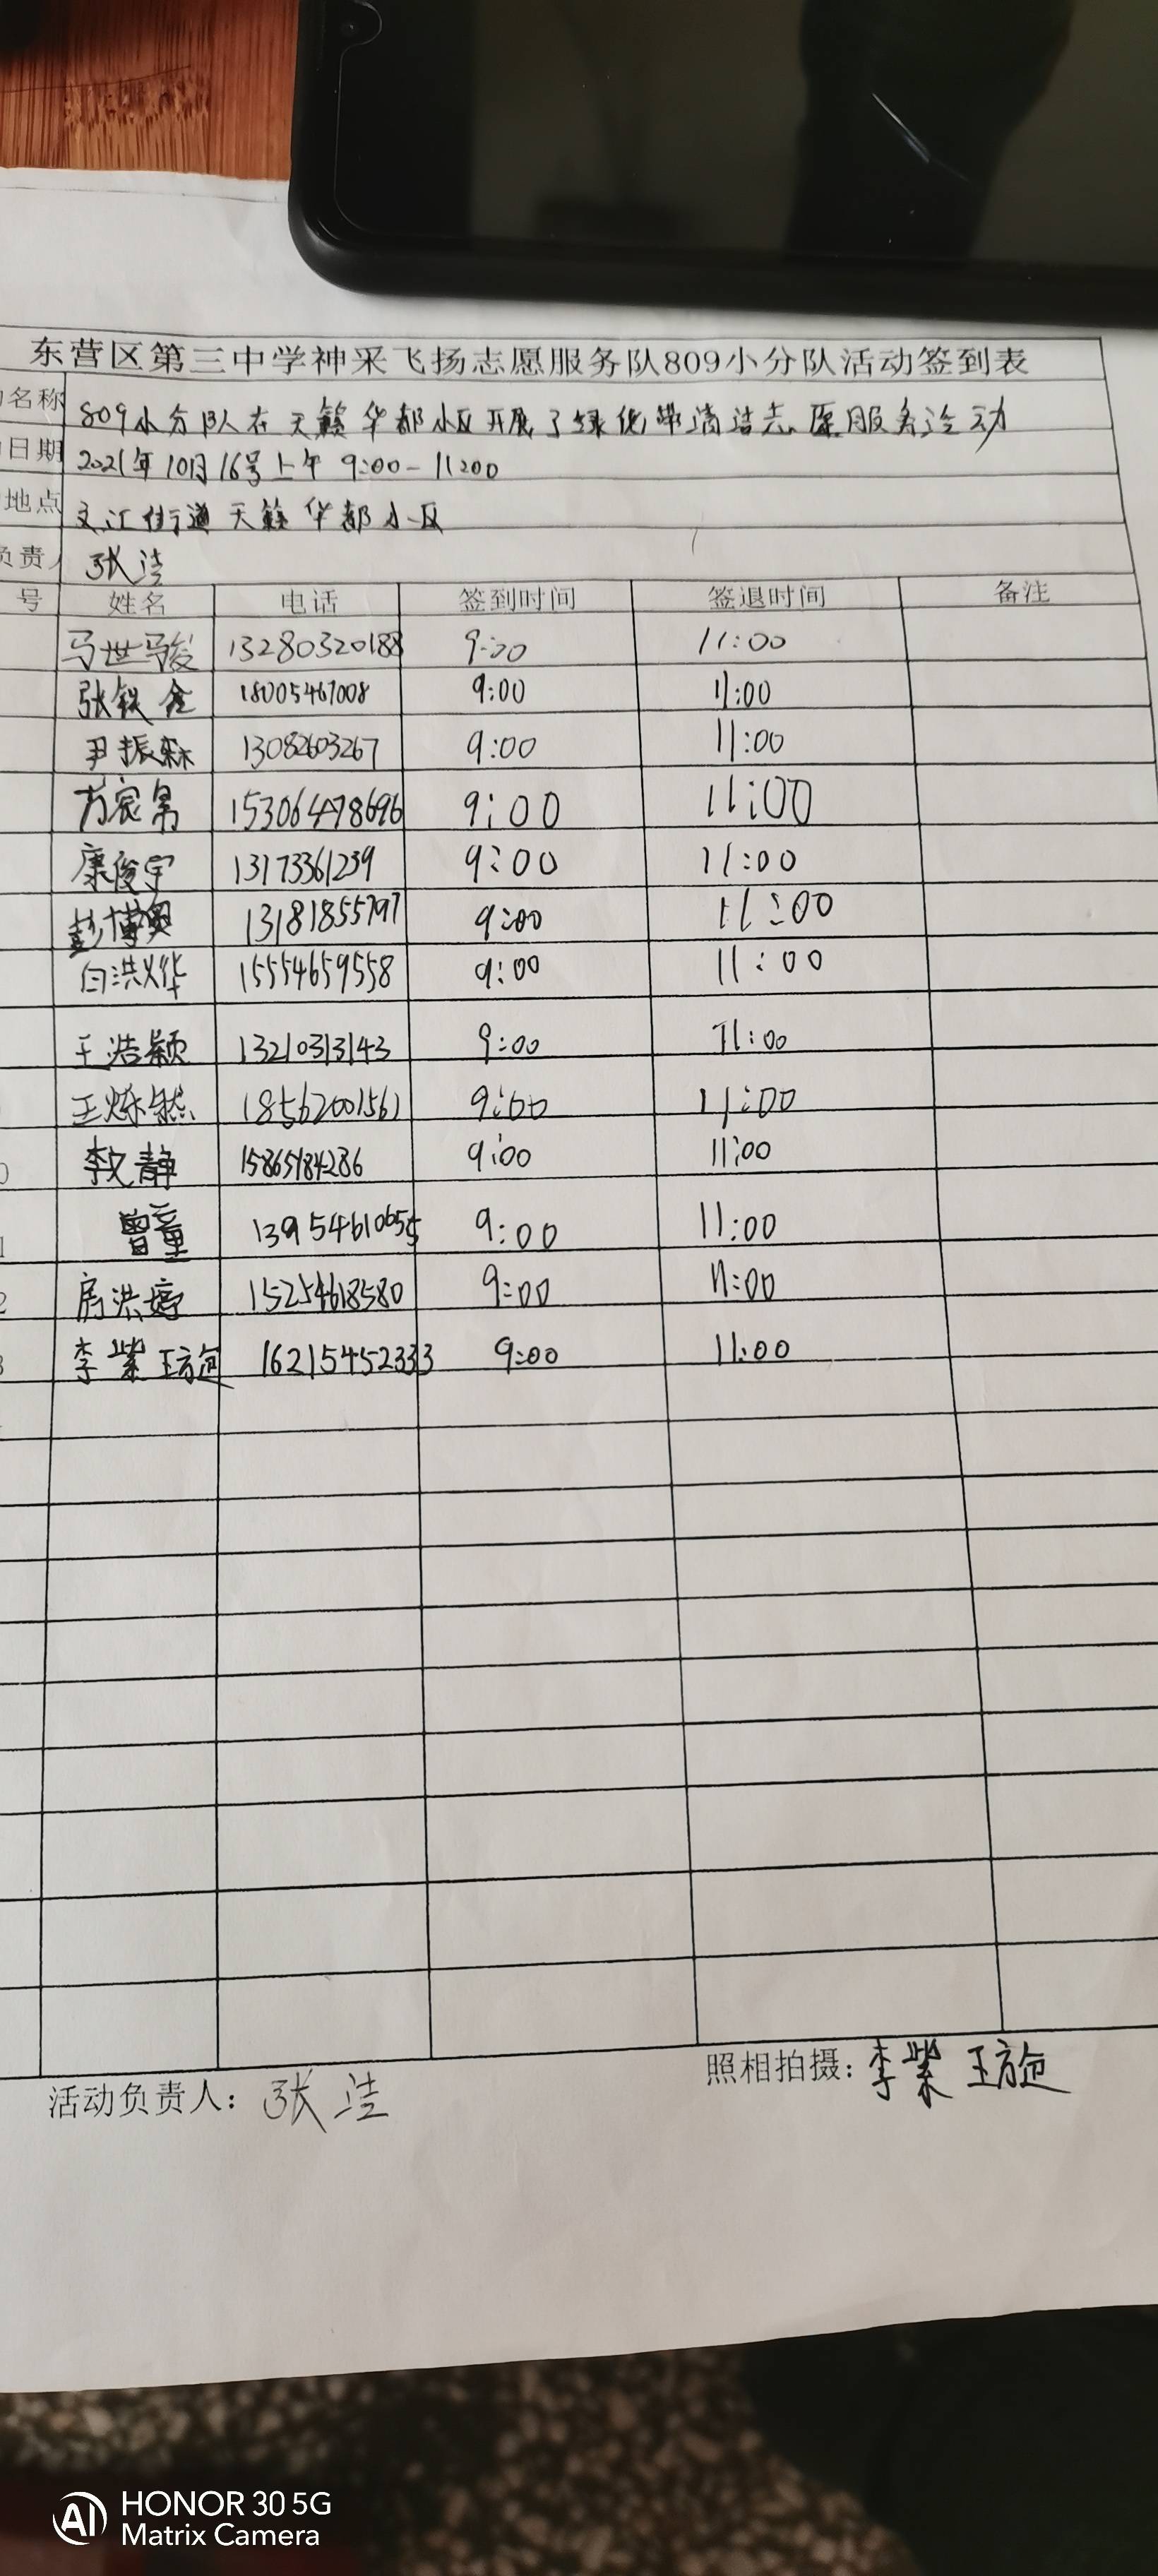 东营区第三中学神采飞扬志愿服务队809小分队活动签到表
名称 809小分队在天籁华都小区开展了绿化带清洁志愿服务活动
日期 2021年10月16号上午 9:00-11:00
地点 文汇街道天籁华都小区
负责人 张洁
号 姓名 电话 签到时间 签退时间 备注
马世骏 13280320188 9:00 11:00
张铁鑫 18005467008 9:00 11:00
尹振霖 13082603267 9:00 11:00
方宸 15306478696 9:00 11:00
康俊宇 13173361239 9:00 11:00
彭博奥 13181855797 9:00 11:00
白洪烨 15554659558 9:00 11:00
王浩颖 13210313143 9:00 11:00
王烁然 18562001561 9:00 11:00
0 李文静 15865184286 9:00 11:00
1 曾童 13954610655 9:00 11:00
2 房洪婷 15254618580 9:00 11:00
3 李紫璇 16215452333 9:00 11:00
活动负责人：张洁 照相拍摄：李紫璇
AI HONOR 30 5G
Matrix Camera